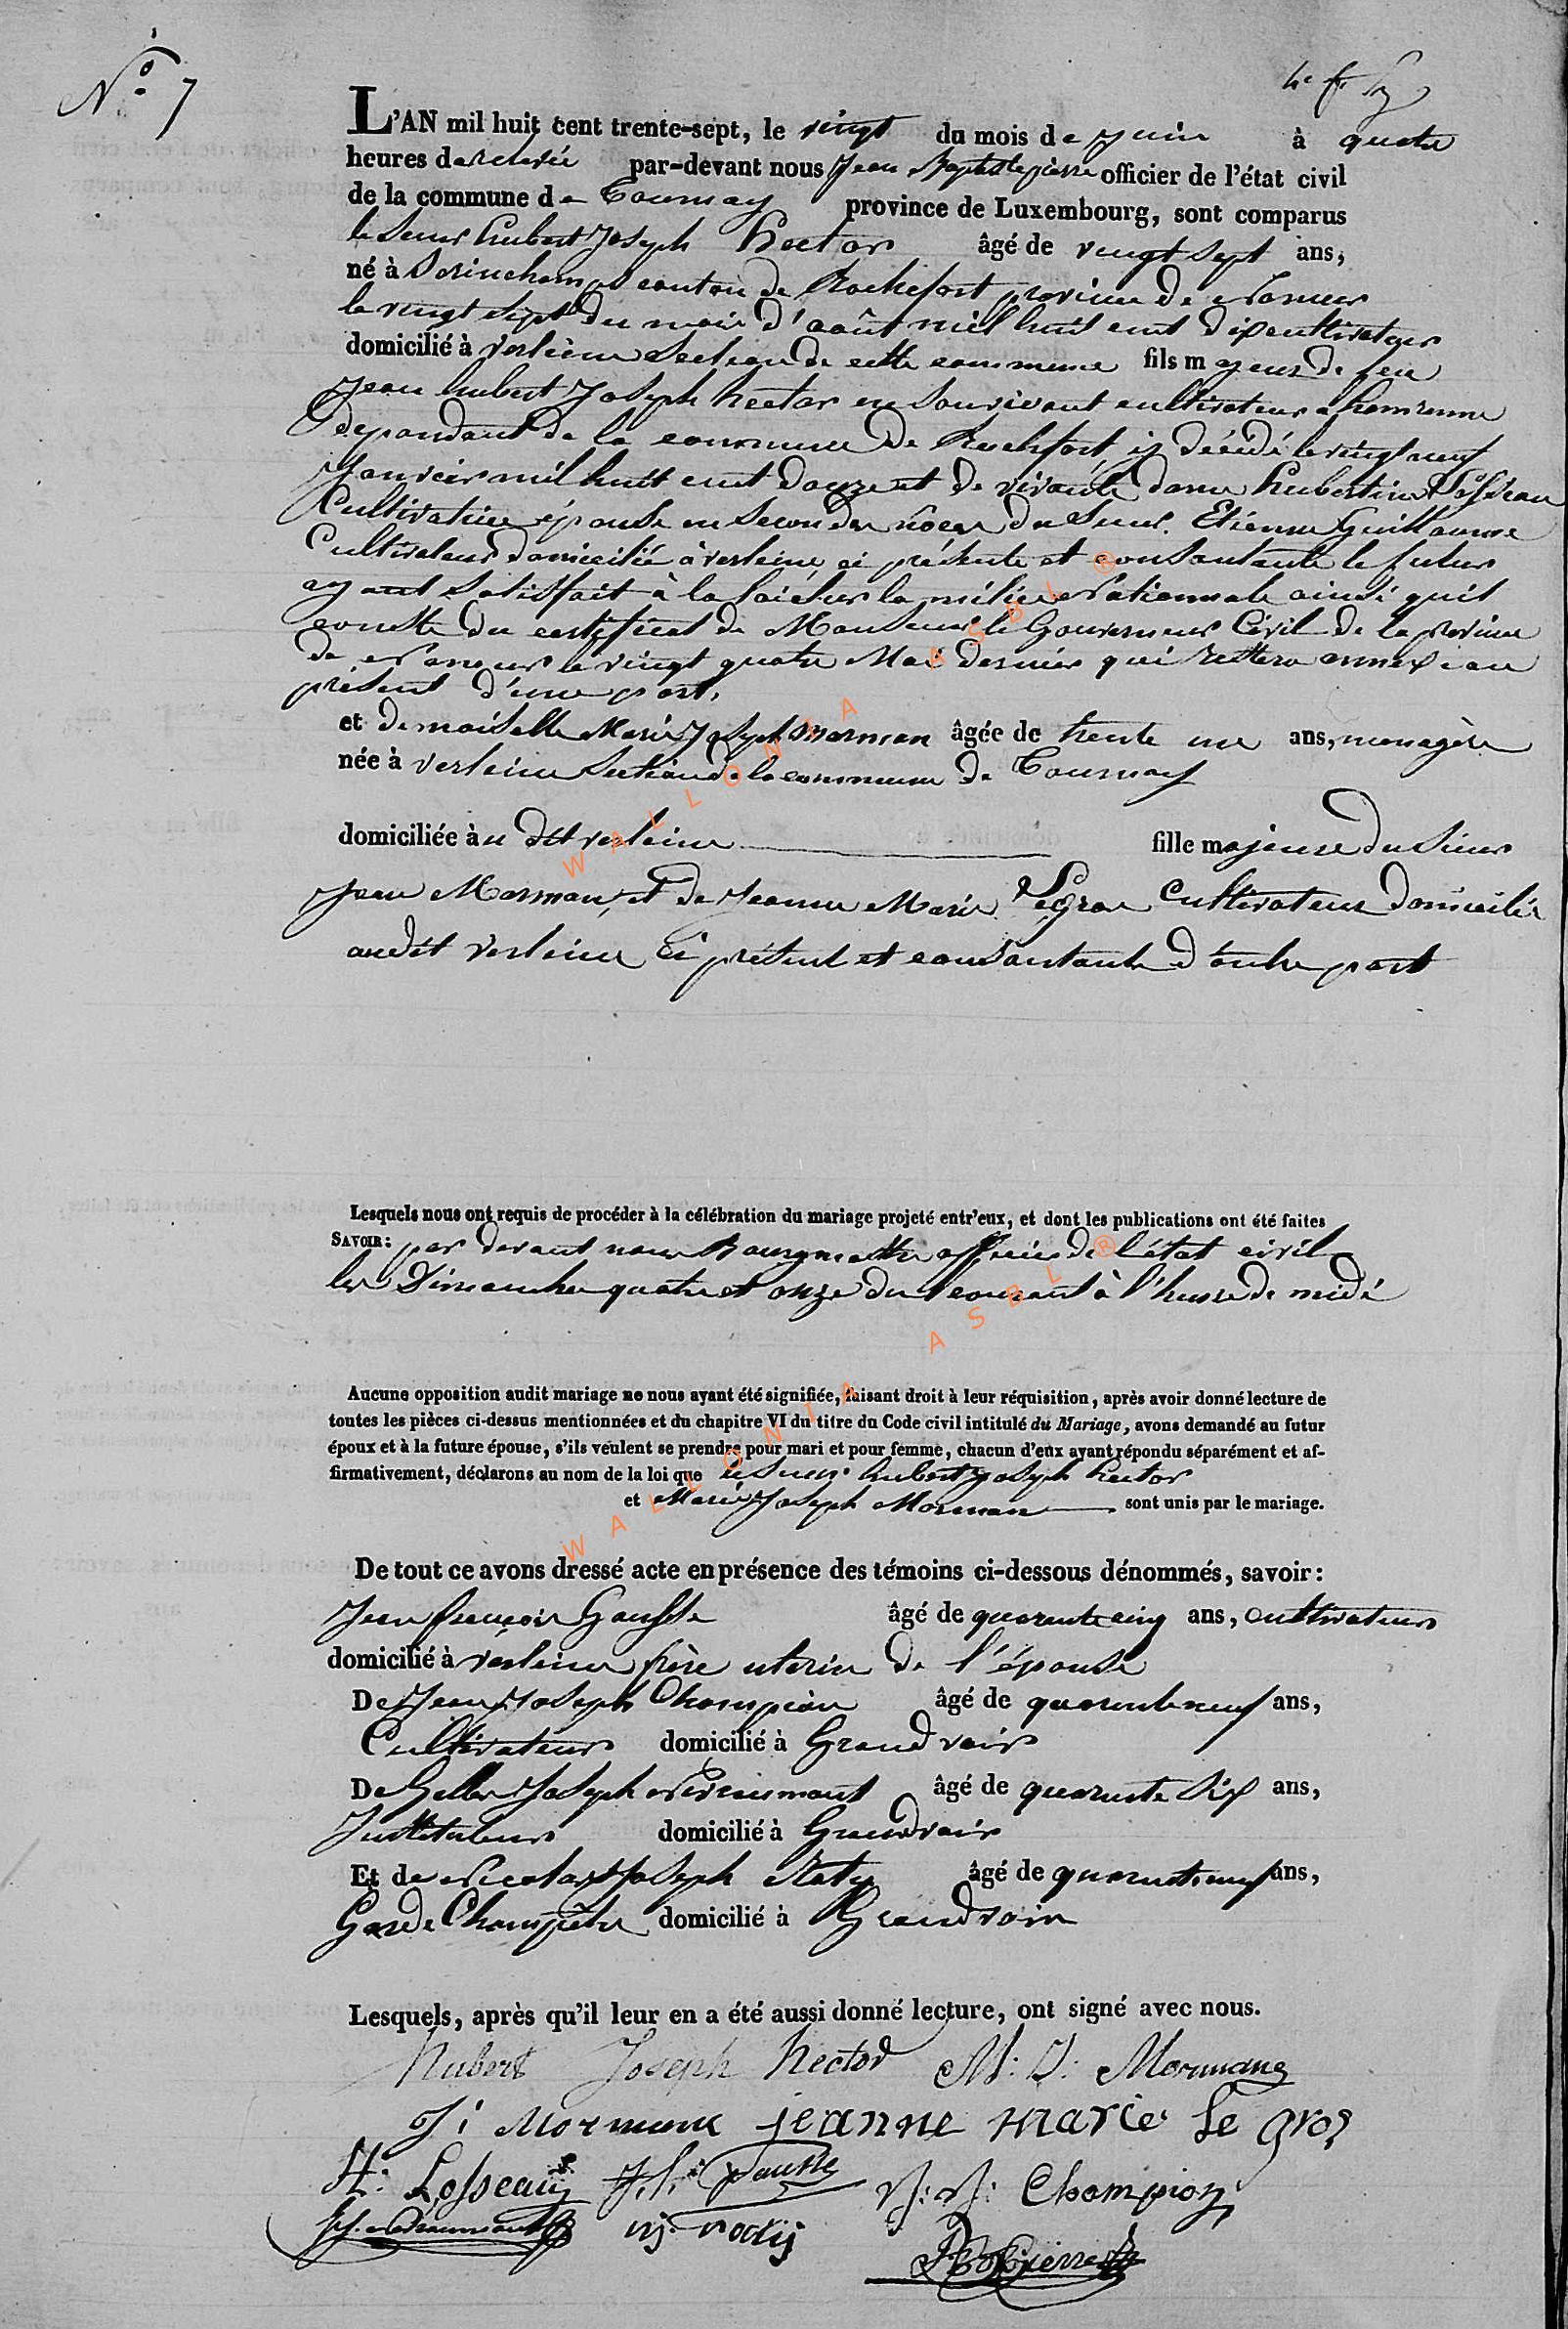 N° 7
L'AN mil huit cent trente-sept, le vingt du mois de Juin à quatre
heures de relevée par-devant nous Jean Baptiste pierre officier de l'état civil
de la commune de Tournay province de Luxembourg, sont comparus
le sieur hubert Joseph hector âgé de vingt sept ans,
né à Serinchamps canton de Rochefort province de Namur
le vingt sept du mois d'août mil huit cent dix cultivateur
domicilié à Verlaine section de cette commune fils majeur de feu
Jean hubert Joseph hector en son vivant cultivateur a
dependant de la commune de Rochefort y décédé le vingt neuf
Janvier mil huit cent douze et de vivante dame hubertine Losseau
Cultivatrice épouse en secondes noces du sieur Etienne Guillaume
Cultivateur domiciliée à verleine ci présente et consantante le futur
ayant satisfait à la loi sur la milice Nationnale ainsi quil
conste du certificat de Monsieur le Gouverneur Civil de la province
de Namur le vingt quatre Mai dernier qui restera annexé au
présent d'une part,
et demoiselle Marie Joseph Morman âgée de trente un ans, menagère
née à verleine section de la commune de Tournay
domiciliée au dit verleine fille majeure du sieur
Jean Morman, et de Jeanne Marie Legros Cultivateur domicilié
audit verleine ci présent et consantante d'autre part
Lesquels nous ont requis de procéder à la célébration du mariage projeté entr'eux, et dont les publications ont été faites
SAVOIR: par devant nous Bourgmestre officier de l'état civil
les Dimanches quatre et onze du courant à l'heure de midi
Aucune opposition audit mariage ne nous ayant été signifiée, faisant droit à leur réquisition, après avoir donné lecture de
toutes les pièces ci-dessus mentionnées et du chapitre VI du titre du Code civil intitulé du Mariage, avons demandé au futur
époux et à la future épouse, s'ils veulent se prendre pour mari et pour femme, chacun d'eux ayant répondu séparément et af-
firmativement, déclarons au nom de la loi que le sieur hubert Joseph hector
et Marie Joseph Morman sont unis par le mariage.
De tout ce avons dressé acte en présence des témoins ci-dessous dénommés, savoir:
Jean françois Gausse âgé de quarante cinq ans, cultivateur
domicilié à verleine frère uterin de l'épouse
De Jean Joseph Champion âgé de quarante neuf ans,
Cultivateur domicilié à Grandvoir
De Joseph âgé de quarante six ans,
Instituteur domicilié à Grandvoir
Et de Nicolas Joseph âgé de quarante neuf ans,
Garde Champêtre domicilié à Grandvoir
Lesquels, après qu'il leur en a été aussi donné lecture, ont signé avec nous.
Hubert Joseph hector M: J: Mormane
J: Morman jeanne marie le gros
H: Losseau J. f. Gausse J: J: Champion
JB Pierre
WALLONIA ASBL ®
WALLONIA ASBL ®